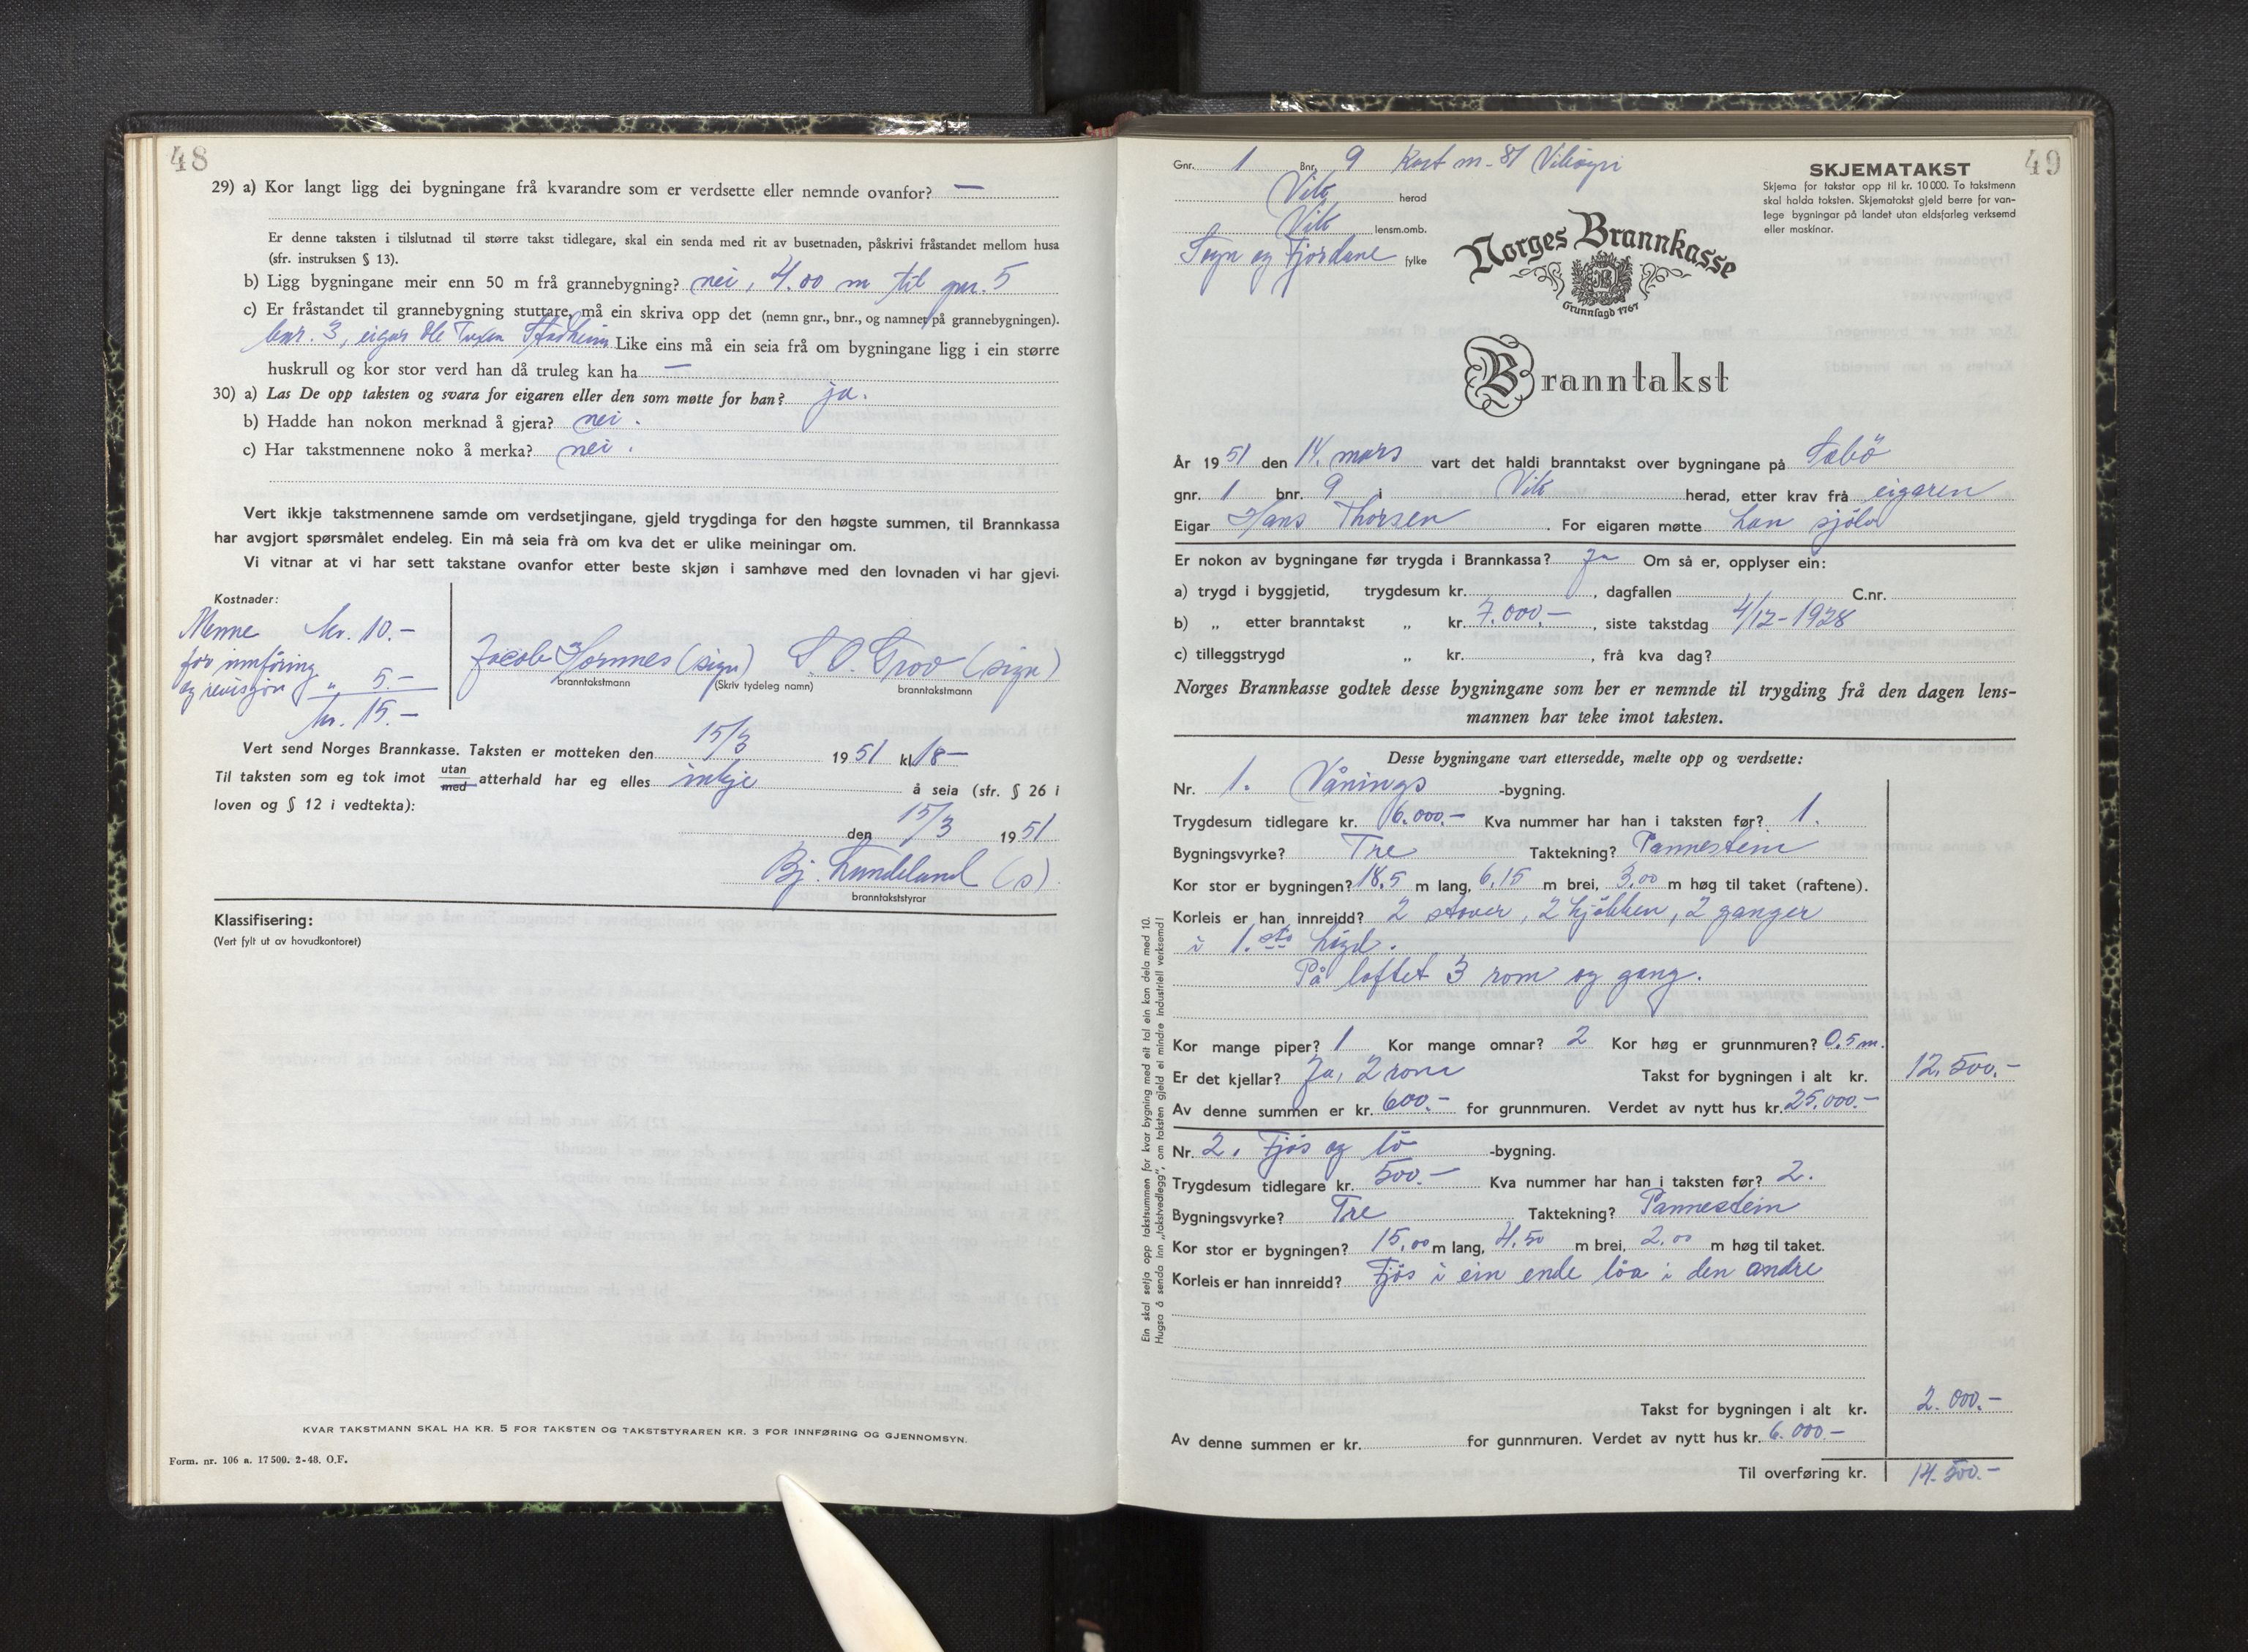 48
29) a) Kor langt ligg dei bygningane frå kvarandre som er verdsette eller nemnde ovanfor? —
Er denne taksten i tilslutnad til større takst tidlegare, skal ein senda med rit av busetnaden, påskrivi fråstandet mellom husa
(sfr. instruksen § 13).
b) Ligg bygningane meir enn 50 m frå grannebygning? nei, 4.00 m til gnr. 5
c) Er fråstandet til grannebygning stuttare, må ein skriva opp det (nemn gnr., bnr., og namnet på grannebygningen).
bnr. 3, eigar Ole Like eins må ein seia frå om bygningane ligg i ein større
huskrull og kor stor verd han då truleg kan ha —
30) a) Las De opp taksten og svara for eigaren eller den som møtte for han? ja.
b) Hadde han nokon merknad å gjera? nei.
c) Har takstmennene noko å merka? nei.
Vert ikkje takstmennene samde om verdsetjingane, gjeld trygdinga for den høgste summen, til Brannkassa
har avgjort spørsmålet endeleg. Ein må seia frå om kva det er ulike meiningar om.
Vi vitnar at vi har sett takstane ovanfor etter beste skjøn i samhøve med den lovnaden vi har gjevi.
Kostnader:
Menne kr. 10.-
for innföring
og revisjon " 5.-
kr. 15.-
Jacob (sign) S. O. Grov (sign)
branntakstmann (Skriv tydeleg namn) branntakstmann
Vert send Norges Brannkasse. Taksten er motteken den 15/3 1951 kl. 18—
Til taksten som eg tok imot utan med atterhald har eg elles inkje å seia (sfr. § 26 i
loven og § 12 i vedtekta):
den 15/3 1951
Bj. Lundeland (s)
branntakststyrar
Klassifisering:
(Vert fylt ut av hovudkontoret)
KVAR TAKSTMANN SKAL HA KR. 5 FOR TAKSTEN OG TAKSTSTYRAREN KR. 3 FOR INNFØRING OG GJENNOMSYN.
Form. nr. 106 a. 17 500. 2-48. O.F.
49
Gnr. 1 Bnr. 9 Kart m-81 Viksøyri
Vik herad
Vik lensm.omb.
Sogn og Fjordane fylke
SKJEMATAKST
Skjema for takstar opp til kr. 10 000. To takstmenn
skal halda taksten. Skjematakst gjeld berre for van-
lege bygningar på landet utan eldsfarleg verksemd
eller maskinar.
Norges Brannkasse
Grunnlagd 1767
Branntakst
År 1951 den 14. mars vart det haldi branntakst over bygningane på Sæbö
gnr. 1 bnr. 9 i Vik herad, etter krav frå eigaren
Eigar Hans Thorsen. For eigaren møtte han sjölv
Er nokon av bygningane før trygda i Brannkassa? Ja Om så er, opplyser ein:
a) trygd i byggjetid, trygdesum kr. , dagfallen C.nr.
b) „ etter branntakst „ kr. 7.000.—, siste takstdag 4/12-1928
c) tilleggstrygd „ kr. , frå kva dag?
Norges Brannkasse godtek desse bygningane som her er nemnde til trygding frå den dagen lens-
mannen har teke imot taksten.
Desse bygningane vart ettersedde, mælte opp og verdsette:
Nr. 1. Vånings -bygning.
Trygdesum tidlegare kr. 6.000.— Kva nummer har han i taksten før? 1.
Bygningsvyrke? Tre Taktekning? Pannestein
Kor stor er bygningen? 18,5 m lang, 6,15 m brei, 3,00 m høg til taket (raftene).
Korleis er han innreidd? 2 stover, 2 kjökken, 2 ganger
i 1.ste högd.
På loftet 3 rom og gang.
Kor mange piper? 1 Kor mange omnar? 2 Kor høg er grunnmuren? 0.5 m.
Er det kjellar? Ja, 2 rom Takst for bygningen i alt kr. 12.500.—
Av denne summen er kr. 600.— for grunnmuren. Verdet av nytt hus kr. 25.000.—
Nr. 2. Fjös og lö -bygning.
Trygdesum tidlegare kr. 500.— Kva nummer har han i taksten før? 2.
Bygningsvyrke? Tre Taktekning? Pannestein
Kor stor er bygningen? 15,00 m lang, 4,50 m brei, 2,00 m høg til taket.
Korleis er han innreidd? Fjös i ein ende löa i den andre
Takst for bygningen i alt kr. 2.000.—
Av denne summen er kr. for gunnmuren. Verdet av nytt hus kr. 6.000.—
Til overføring kr. 14.500.—
Ein skal setja opp takstsummen for kvar bygning med eit tal ein kan dela med 10.
Hugsa å senda inn „takstvedlegg", om taksten gjeld ei mindre industriell verksemd!